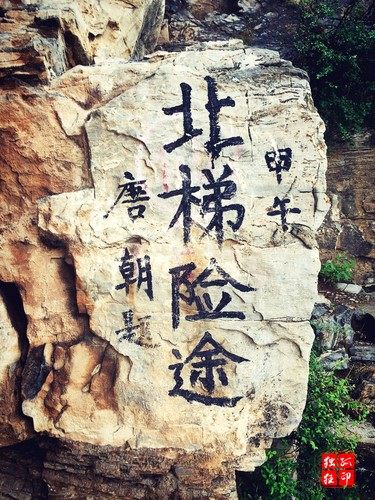 甲午
北梯险途
唐朝题